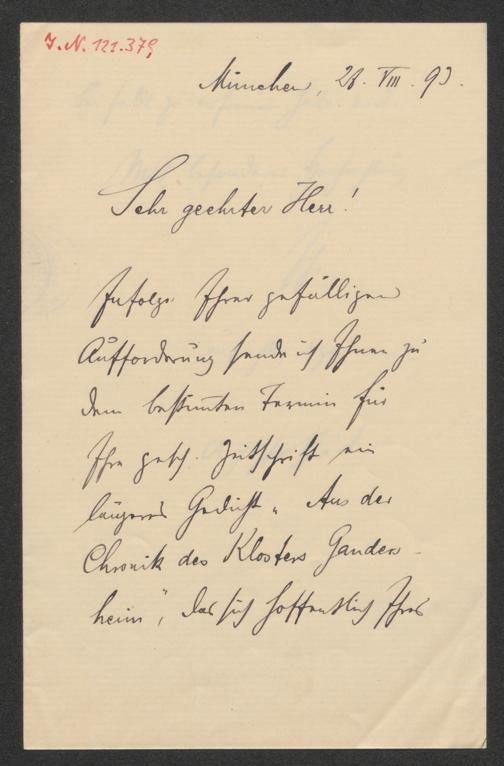 J. N. 121.379
München, 28. VIII. 93.
Sehr geehrter Herr!
Infolge Ihrer gefälligen
Aufforderung sende ich Ihnen zu
dem bestimmten Termin für
Ihre gesch. Zeitschrift ein
längeres Gedicht „Aus der
Chronik des Klosters Ganders-
heim", das sich hoffentlich Ihres